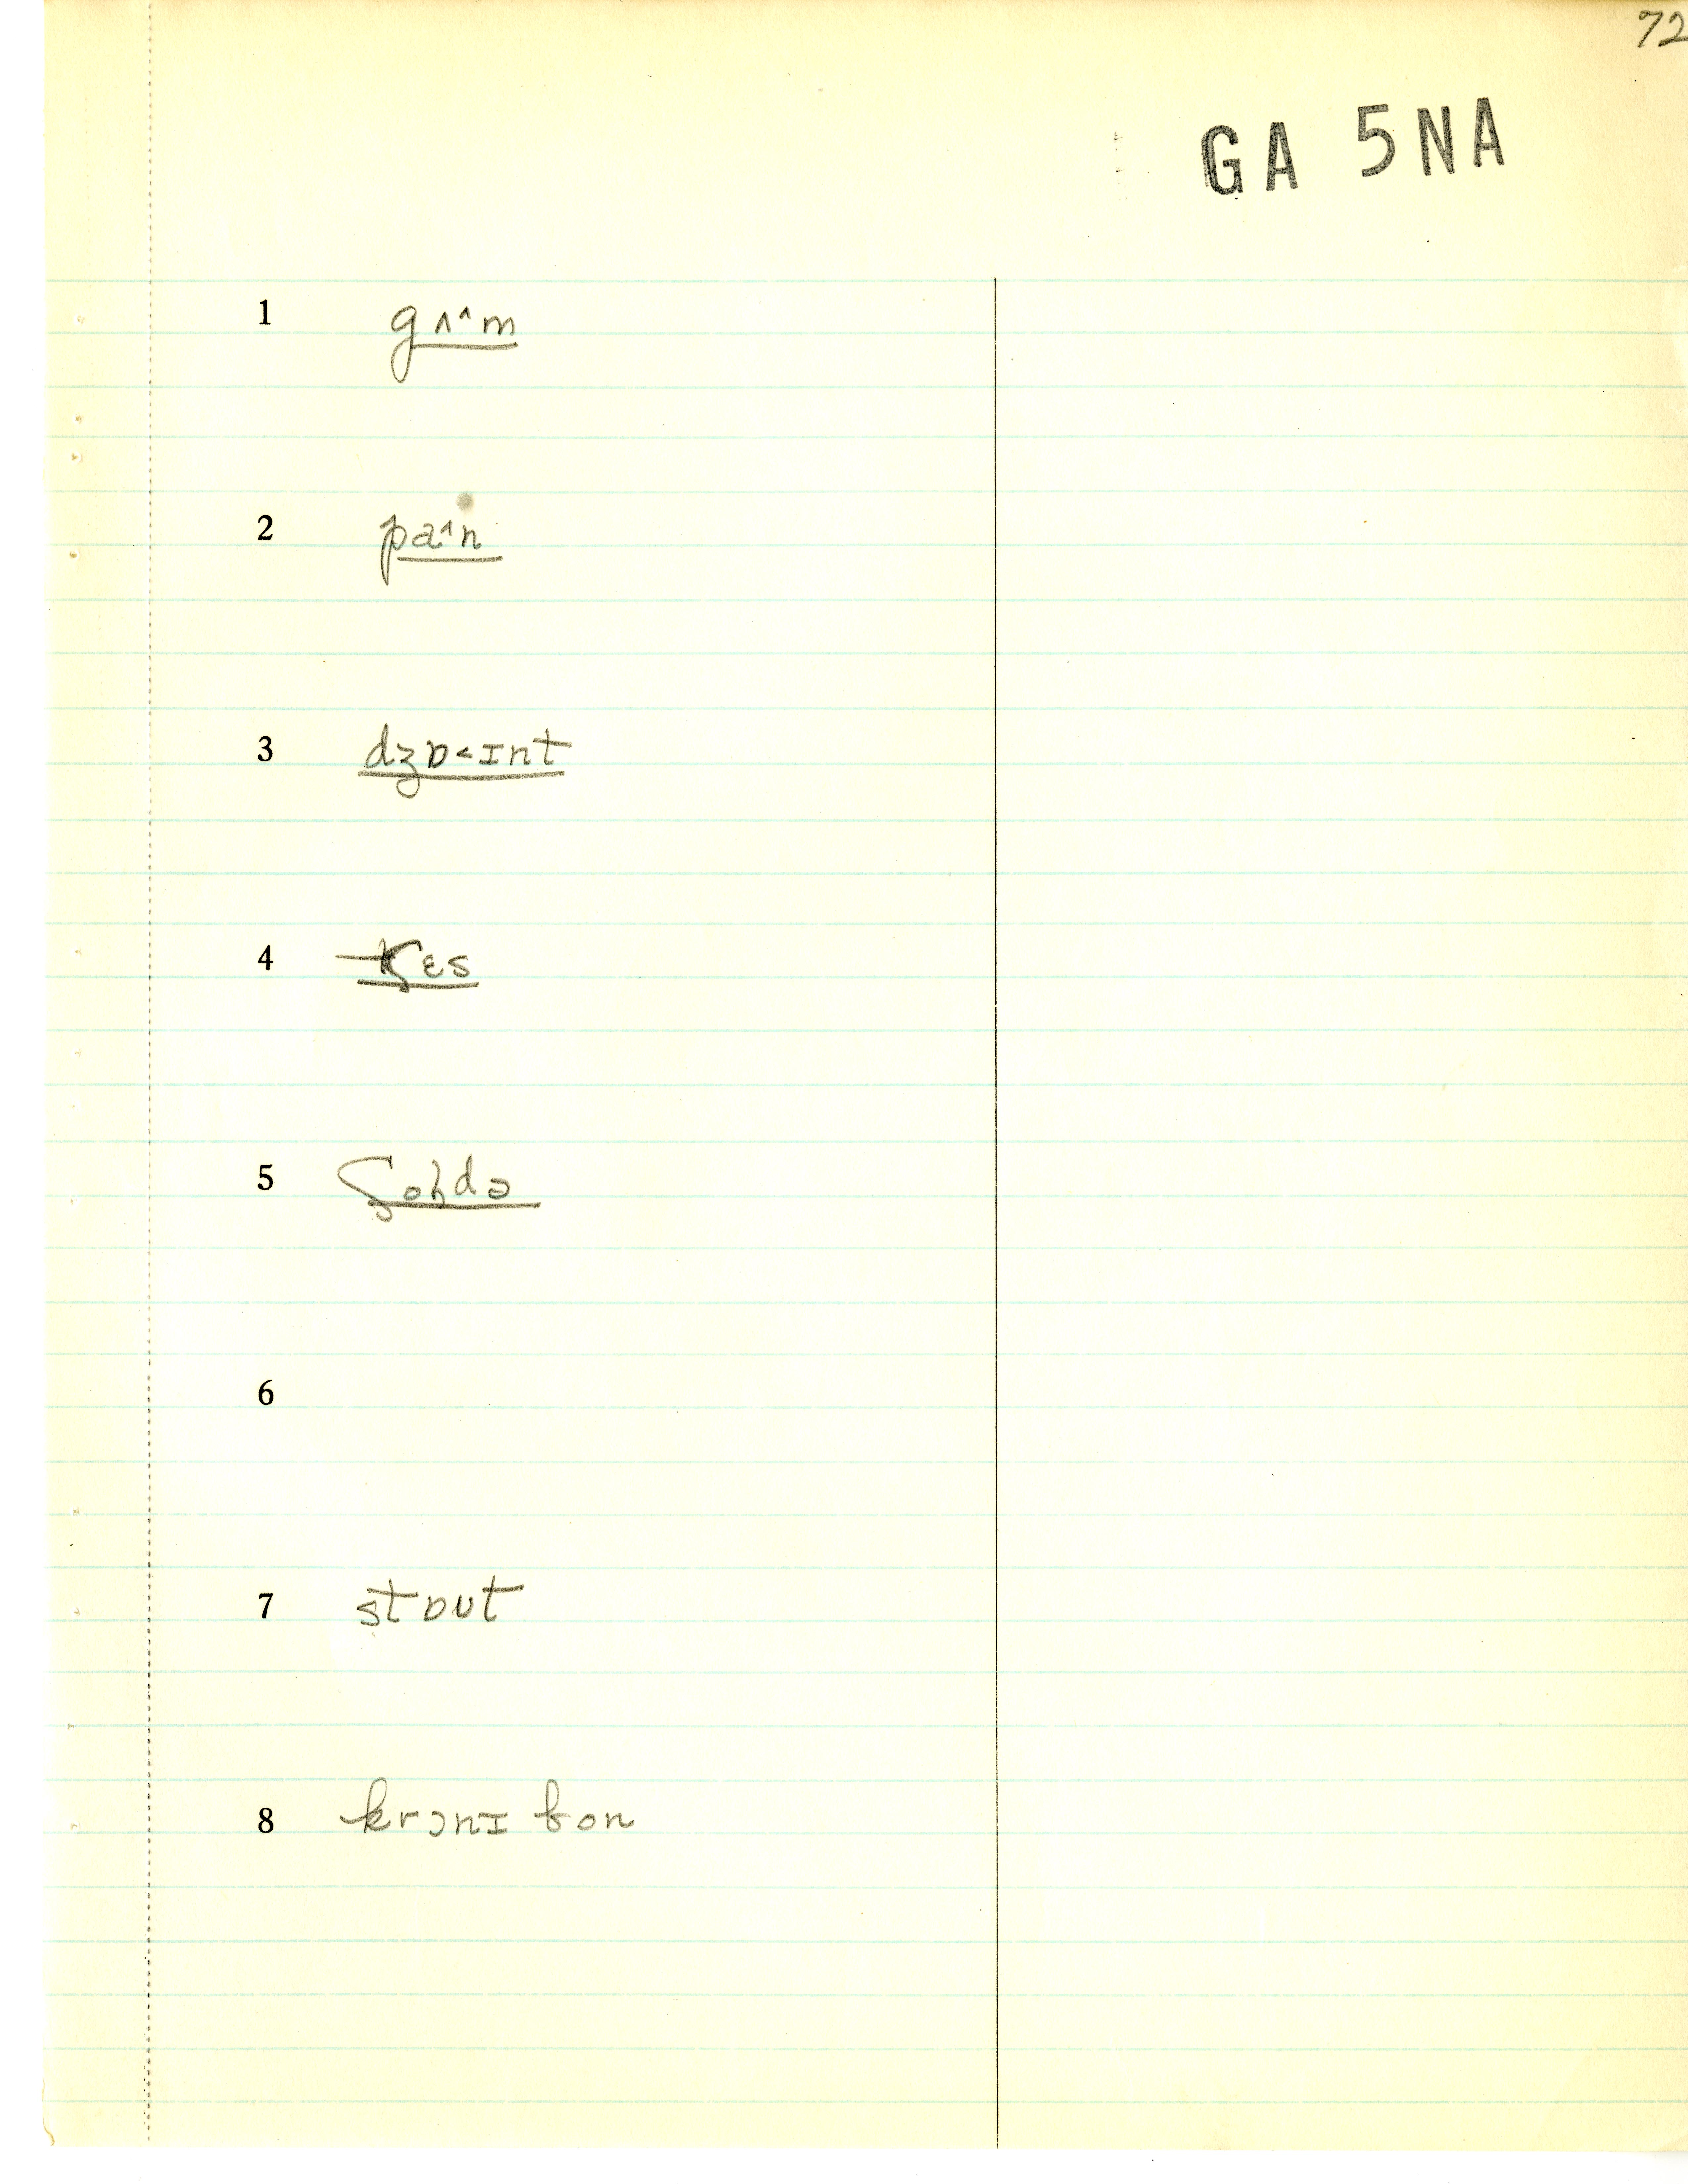 72
GA 5NA
1 gʌ^m
2 pa^n
3 dʒɒ<ɪnt
4 ʃɛs
5 ʃoɫdə
6
7 stɒut
8 krɔnɪ bon